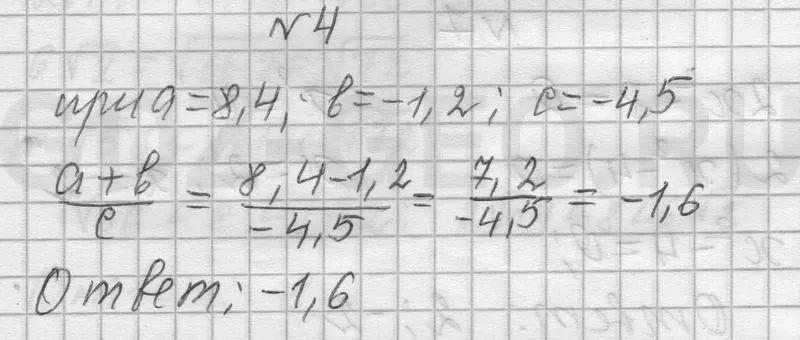 №4
при a = 8,4, b = -1,2; c = -4,5
(a+b)/c = (8,4-1,2)/(-4,5) = 7,2/(-4,5) = -1,6
Ответ: -1,6